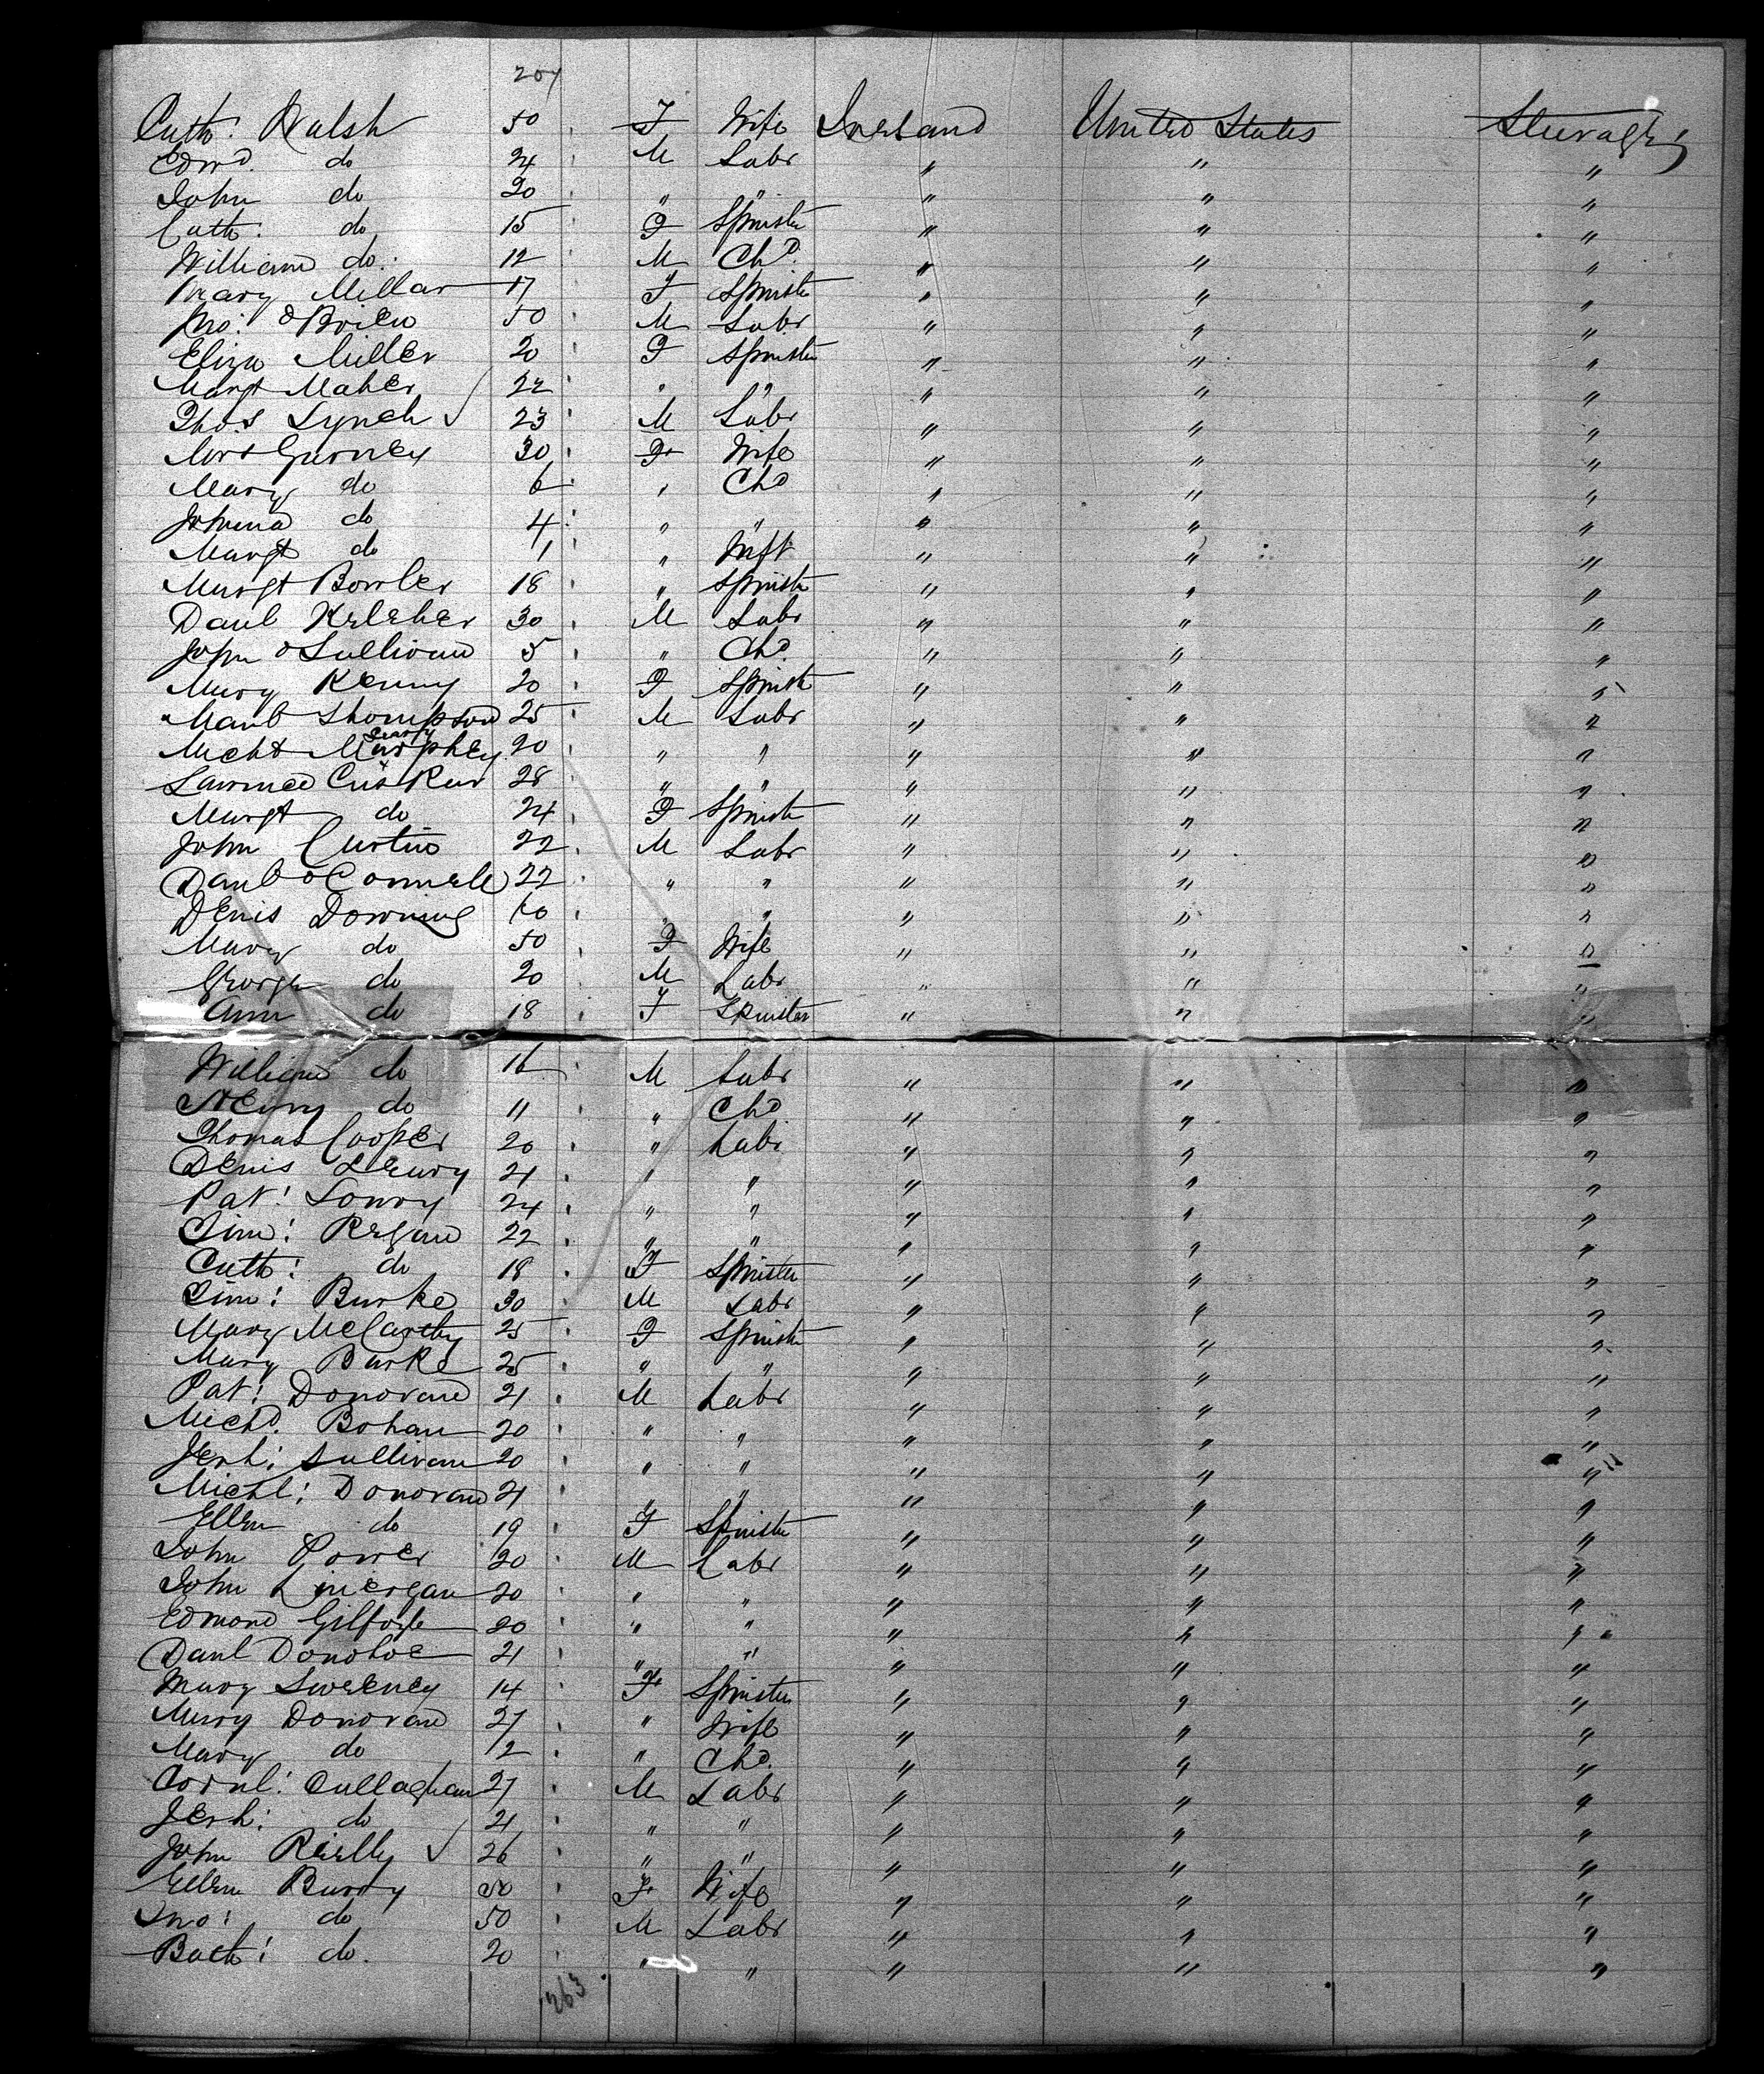 207
Cath: Walsh 50 F Wife Ireland United States Steerage
Edwd. do 24 M Labr " " "
John do 20 " " " " "
Cath: do 15 F Spinster " " "
William do. 12 M Chd. " " "
Mary Millar 17 F Spinster " " "
Jno: OBrien 50 M Labr " " "
Eliza Miller 20 F Spinster " " "
Margt Maher 22 " " " " "
Thos Lynch ✓ 23 M Labr " " "
Mrs Gurney 30 F Wife " " "
Mary do 6 " Chd " " "
Johana do 4 " " " " "
Margt do 1 " Inft " " "
Margt Bowler 18 " Spinster " " "
Danl Keleher 30 M Labr " " "
John OSullivan 5 " Chd. " " "
Mary Kenny 20 F Spinst " " "
Thompson 25 M Labr " " "
Michl Murphey 20 " " " " "
Lawrence 28 " " " " "
Margt do 24 F Spinst " " "
John Curtin 22 M Labr " " "
Danl OConnell 22 " " " " "
Denis Downing 60 " " " "
Mary do 50 F Wife " " "
George do 20 M Labr " " "
Ann do 18 F Spinster " " "
William do 16 M Labr " " "
Henry do 11 " Chd " " "
Thomas Cooper 20 " Labr " " "
Denis Leury 21 " " " " "
Pat: Lowry 24 " " " " "
Tim: Regan 22 " " " " "
Cath: do 18 F Spinster " " "
Tim: Burke 30 M Labr " " "
Mary McCarthy 25 F Spinster " " "
Mary Burke 25 " " " " "
Pat: Donovan 21 M Labr " " "
Michl. Bohan 20 " " " " "
Jerh: Sullivan 20 " " " " "
Michl: Donovan 21 " " " " "
Ellen do 19 F Spinster " " "
John Power 20 M Labr " " "
John Linergan 20 " " " " "
Edmond Gilfoyle 20 " " " " "
Danl Donohoe 21 " " " " "
Mary Sweeney 14 F Spinster " " "
Mary Donovan 27 " Wife " " "
Mary do 2 " Chd. " " "
Cornl: Cullaghan 27 M Labr " " "
Jerh: do 21 " " " " "
John Rielly ✓ 26 " " " " "
Ellen Burry 50 F Wife " " "
Jno: do 50 M Labr " " "
Bath: do. 20 " " " " "
263